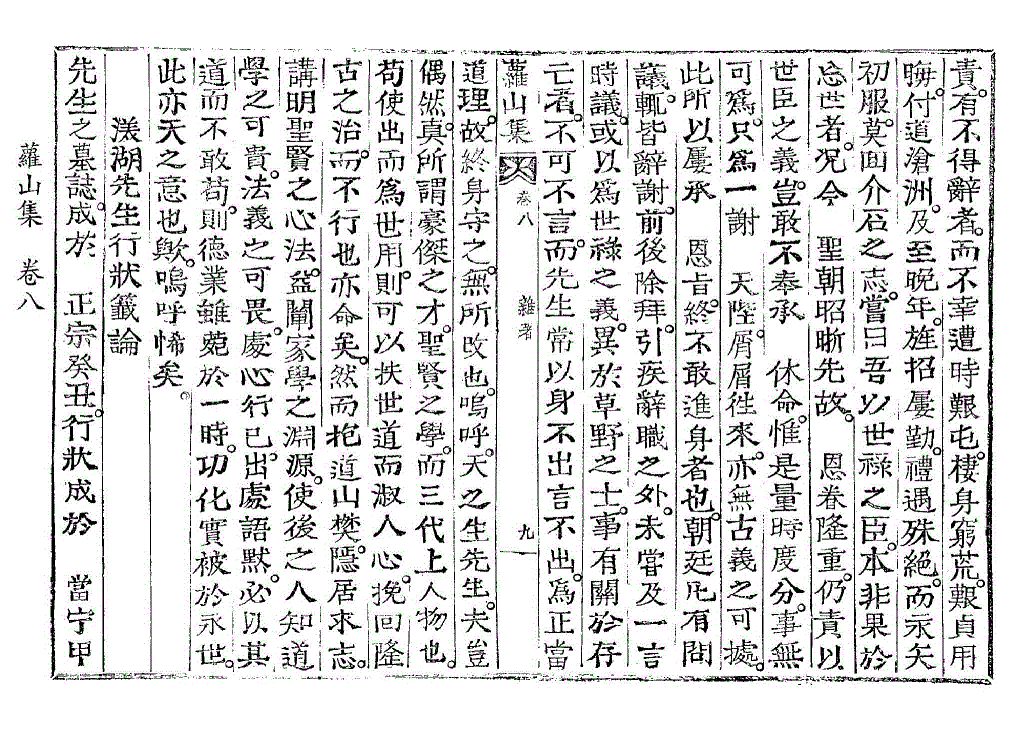 責有不得辭者而不幸遭時艱屯棲身窮荒艱貞用
晦付道滄洲及至晩年旌招屢勤禮遇殊絕而永矢
初服莫回介石之志嘗曰吾以世祿之臣本非果於
忘世者况今　聖朝昭晣先故　恩眷隆重仍責以
世臣之義豈敢不奉承　休命惟是量時度分事無
可爲只爲一謝　天陛屑屑往來亦無古義之可據
此所以屢承　恩旨終不敢進身者也朝廷凡有問
議輒皆辭謝前後除拜引疾辭職之外未嘗及一言
時議或以爲世祿之義異於草野之士事有關於存
亡者不可不言而先生常以身不出言不出爲正當
蘿山集　卷八　雜著　九
道理故終身守之無所改也嗚呼天之生先生夫豈
偶然眞所謂豪傑之才聖賢之學而三代上人物也
苟使出而爲世用則可以扶世道而淑人心挽回隆
古之治而不行也亦命矣然而抱道山樊隱居求志
講明聖賢之心法益闡家學之淵源使後之人知道
學之可貴法義之可畏處心行己出處語默必以其
道而不敢苟則德業雖菀於一時功化實被於永世
此亦天之意也歟嗚呼悕矣
渼湖先生行狀籤論
先生之墓誌成於　正宗癸丑行狀成於　當宁甲
蘿山集　卷八